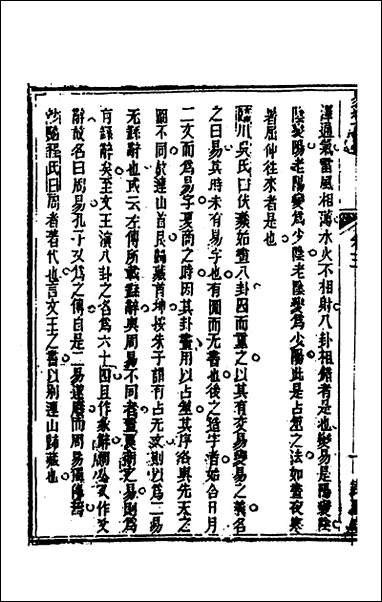 澤通氣雷風相薄水火不相射八卦相錯者是也變易是陽變陰
陰變陽老陽變爲少陰老陰變爲少陽此是占筮之法如晝夜寒
暑屈伸往來者是也
臨川吳氏曰伏羲始畫八卦因而重之以其有交易變易之義名
之曰易其時未有易字也有圖而无書也後之造字者始合日月
二文而爲易字夏商之時因其卦畫用以占筮其序洛與先天之
圖不同故連山首艮歸藏首坤按朱子謂有占无文則以爲二易
无繇辭也或云左傳所載繇辭與周易不同者蓋夏商之易則爲
有繇辭矣至文王演八卦之名爲六十四且作彖辭周公又作文
辭故名曰周易孔子又爲之傳自是二易遂廢而周易獨傳
沙隨程氏曰周者著代也言文王之書以別連山歸藏也